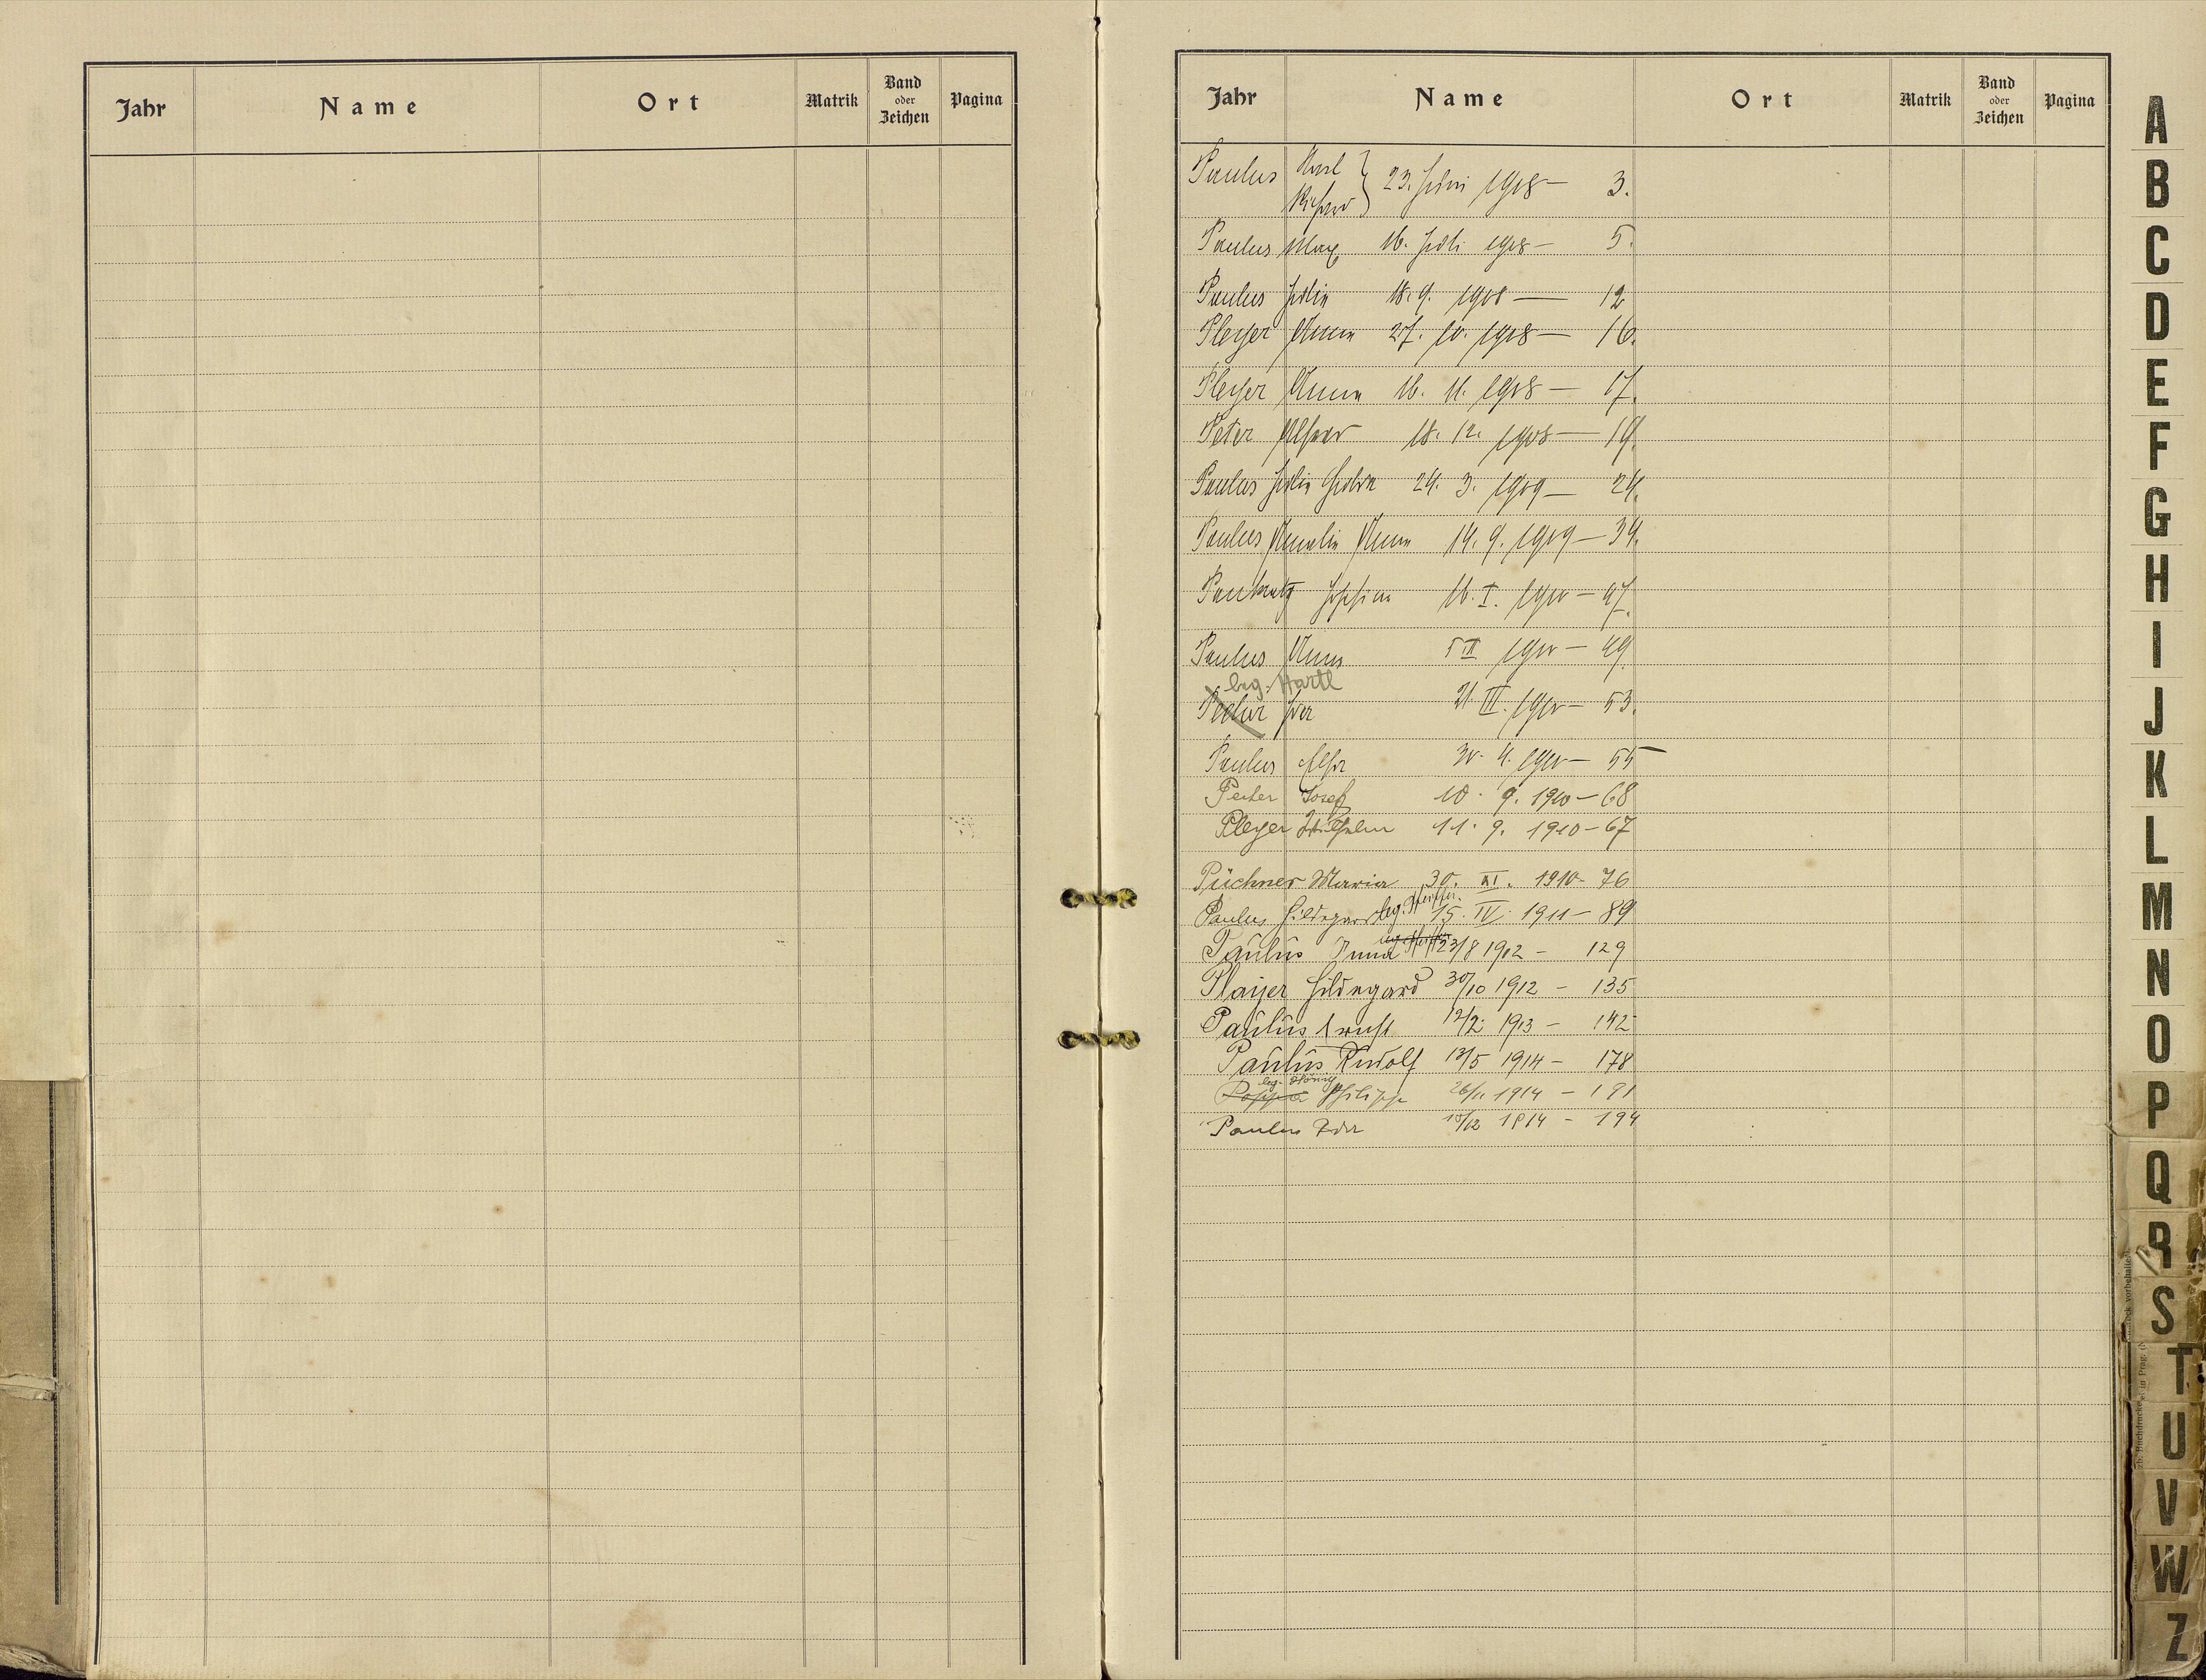 Jahr Name Ort Matrik Band oder Zeichen Pagina
Jahr Name Ort Matrik Band oder Zeichen Pagina
Paulus Karl } 23. Juni 1908 — 3.
Richard
Paulus Max 16. Juli 1908 — 5.
Paulus Julie 18. 9. 1908 — 12
Pleyer Anna 27. 10. 1908 — 16.
Pleyer Anna 16. 11. 1908 — 17.
Peter Alfred 18. 12. 1908 — 19.
Paulus Julie 24. 3. 1909 — 24.
Paulus Amalie Anna 14. 9. 1909 — 39.
Pankratz 16. I. 1910 — 47.
Paulus Anna 5 II 1910 — 49.
leg. Hartl
21. III. 1910 — 53.
Paulus 30. 4. 1910 — 55
Peter Josef 10. 9. 1910 — 68
Pleyer Wilhelm 11. 9. 1910 — 67
Püchner Maria 30. XI. 1910 - 76
leg. Pfeiffer
Paulus Hildegard 15. IV. 1911 — 89
Paulus 23/8 1912 — 129
Plaijer Hildegard 30/10 1912 — 135
Paulus Ernst 12/2 1913 — 142
Paulus Rudolf 13/5 1914 — 178
leg. König
Philipp 26/11 1914 — 191
Paulus Ida 10/12 1914 — 194
A
B
C
D
E
F
G
H
I
J
K
L
M
N
O
P
Q
R
S
T
U
V
W
Z